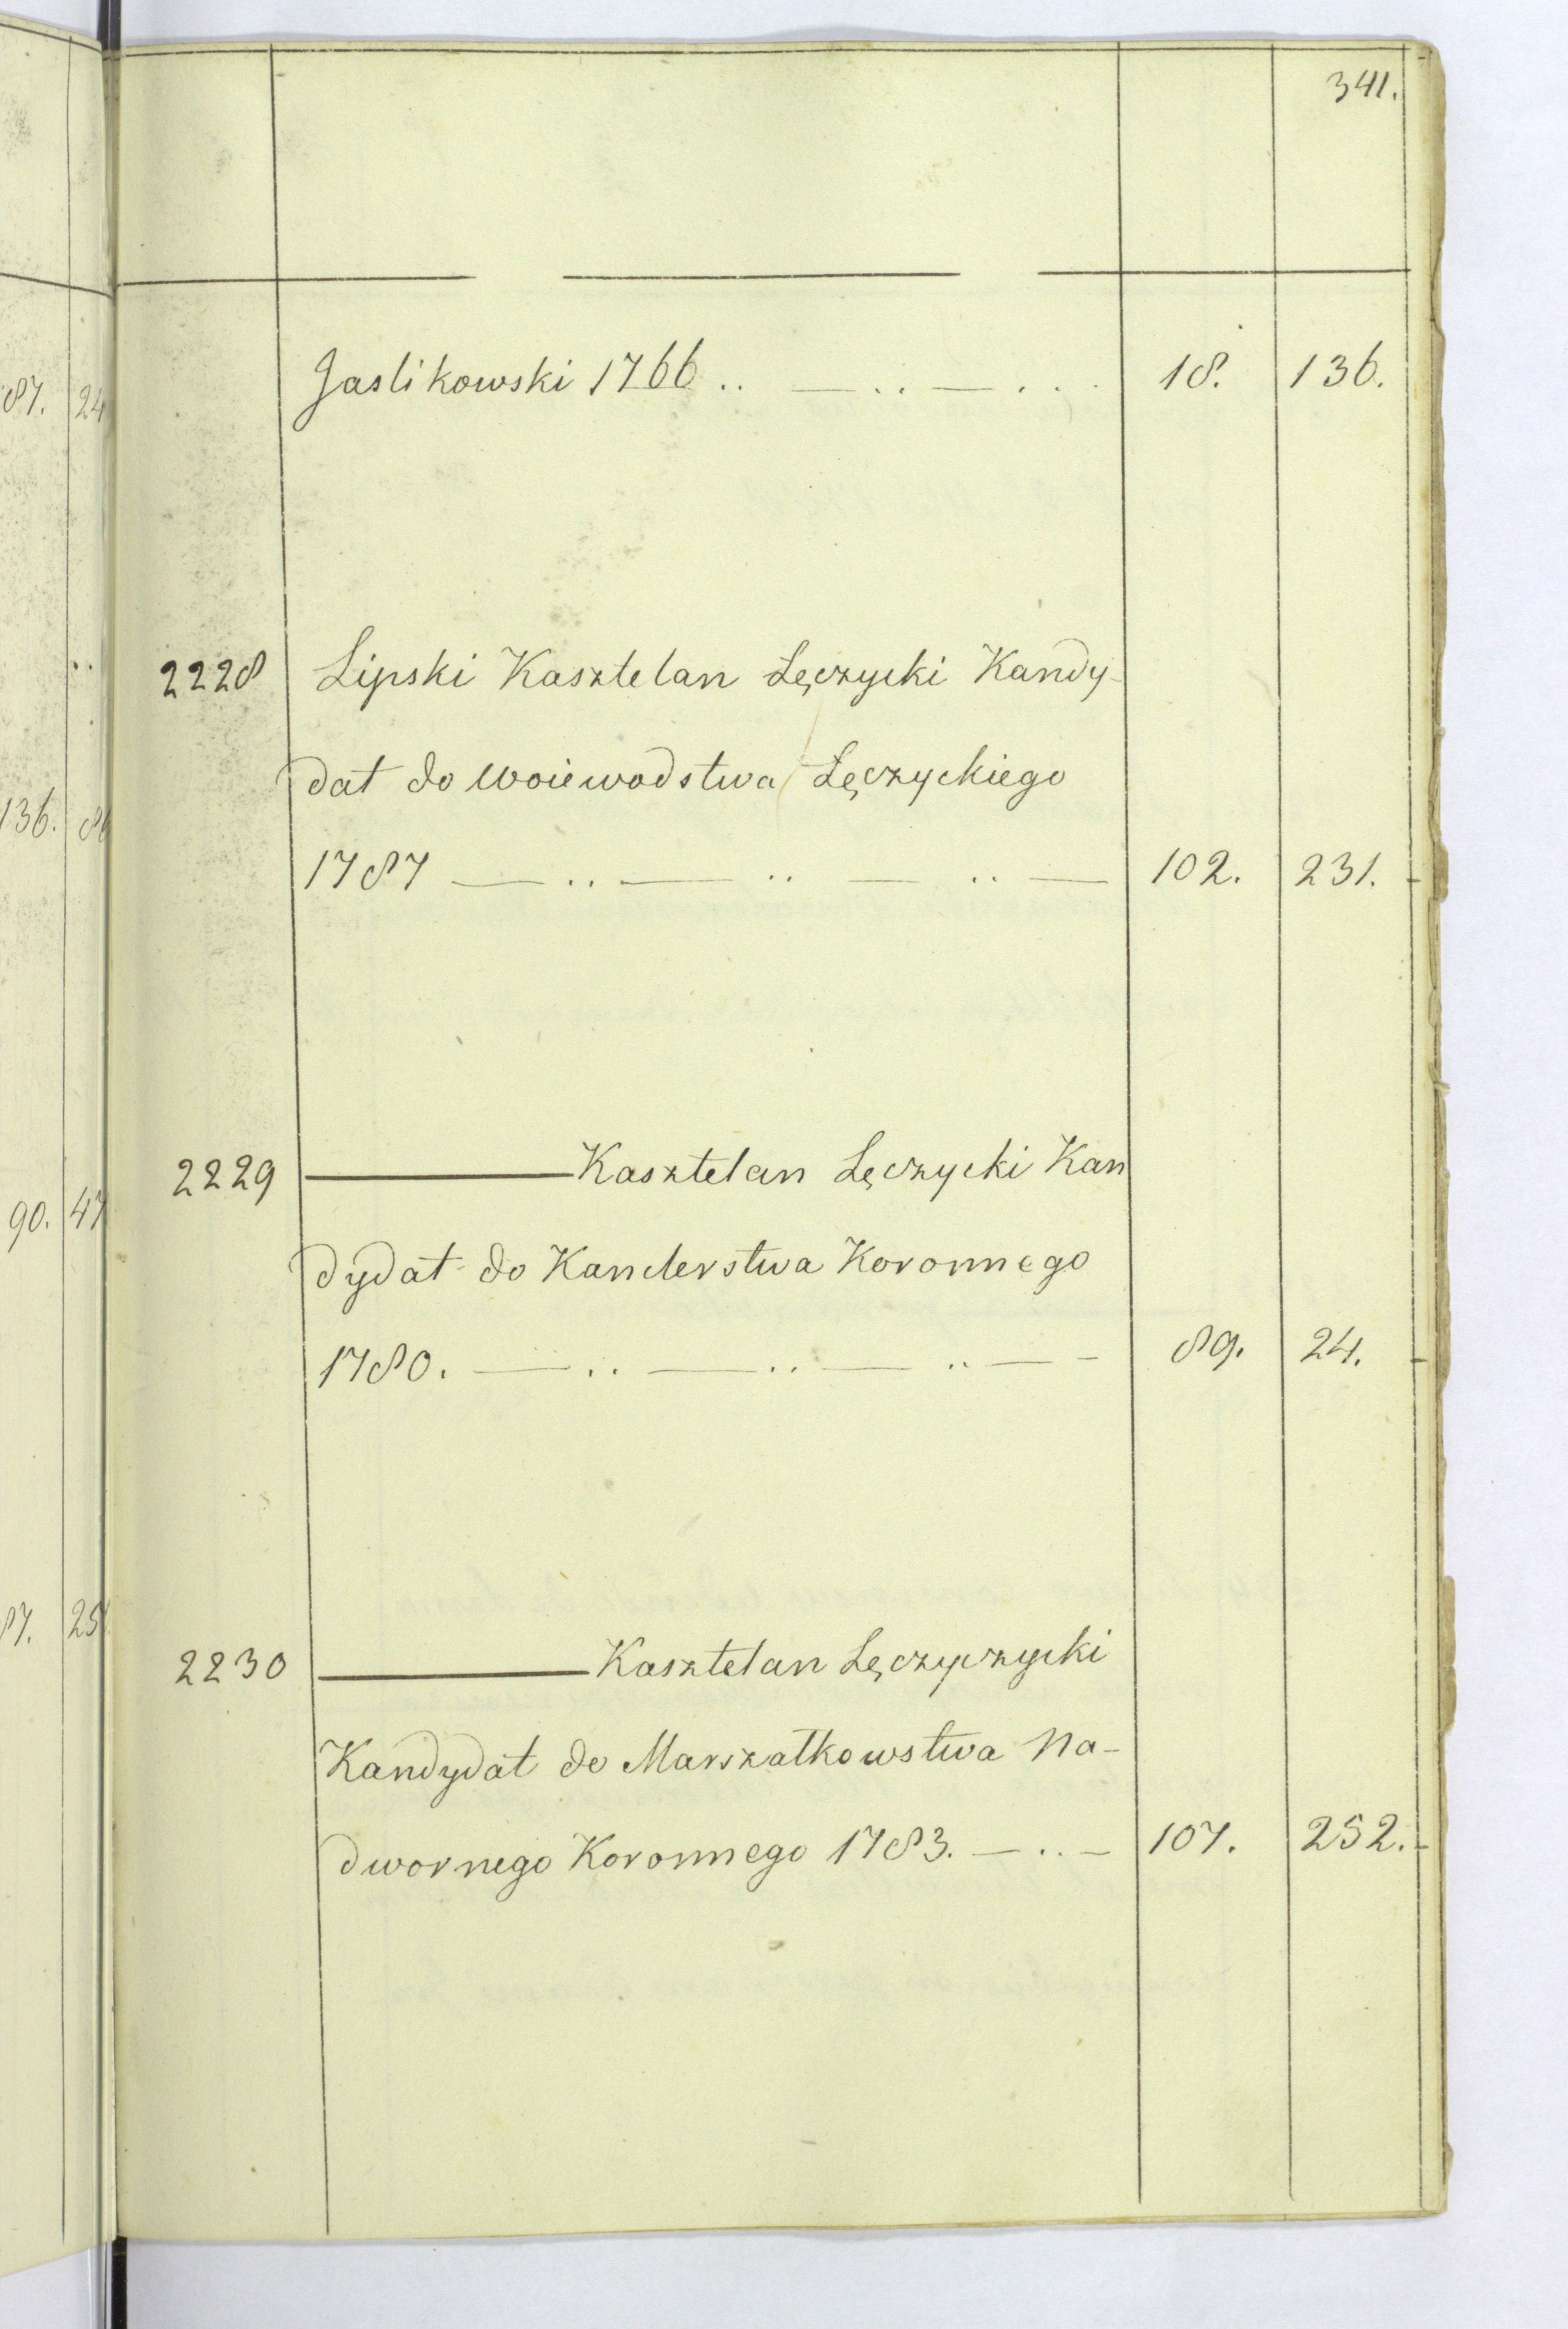 341.
Jaslikowski 1766 .. — .. — . . . 18. 136.
2228 Lipski Kasztelan Łęczycki Kandy-
dat do Woiewodstwa Łęczyckiego
1787 — .. — .. — .. — 102. 231.
2229 ——— Kasztelan Łęczycki Kan
dydat do Kanclerstwa Koronnego
1780. — .. — .. — .. — - 89. 24.
2230 ——— Kasztelan Łęczyczycki
Kandydat do Marszałkowstwa Na-
dwornego Koronnego 1783. — .. — 107. 252.
87. 24
136.
90. 47